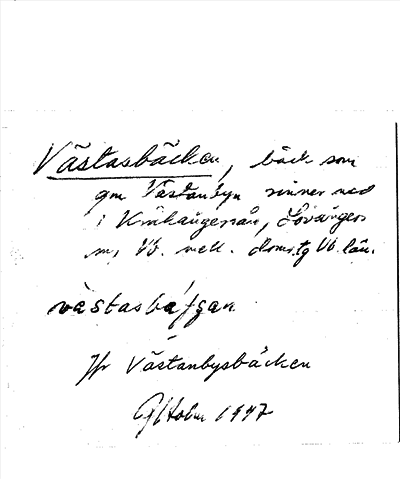 Västasbäcken, bäck som
gm Västanbyn rinner ned
i Kräkångerån, Lövånger
Vb. Vb. län.
västasbäƒgan
Jfr Västanbysbäcken
G Holm 1947